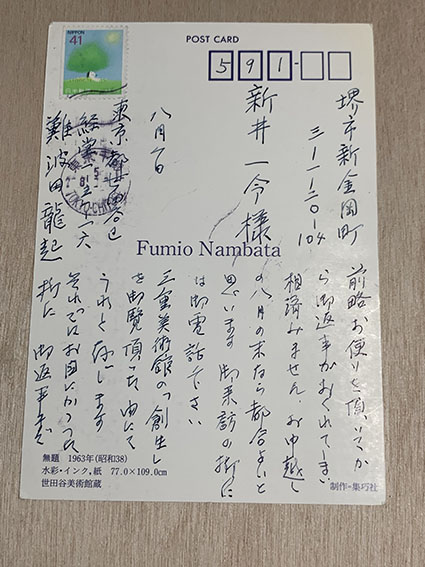 NIPPON
41
POST CARD
591-
堺市新金岡町
三ー一ー二〇ー104
新井一令様
八月六日
東京都世田谷区
経堂
難波田龍起
Fumio Nambata
前略お便りを頂いてか
ら御返事がおくれてしまい
相済みません。お申越し
の八月の末なら都合よいと
思います 御来訪の折に
は御電話下さい
三重美術館の「創生」
を御覧頂いた由にて
うれしく存じます
それではお目にかかった
折に 御返事まで
無題 1963年(昭和38)
水彩・インク,紙 77.0×109.0cm
世田谷美術館蔵
制作-集巧社